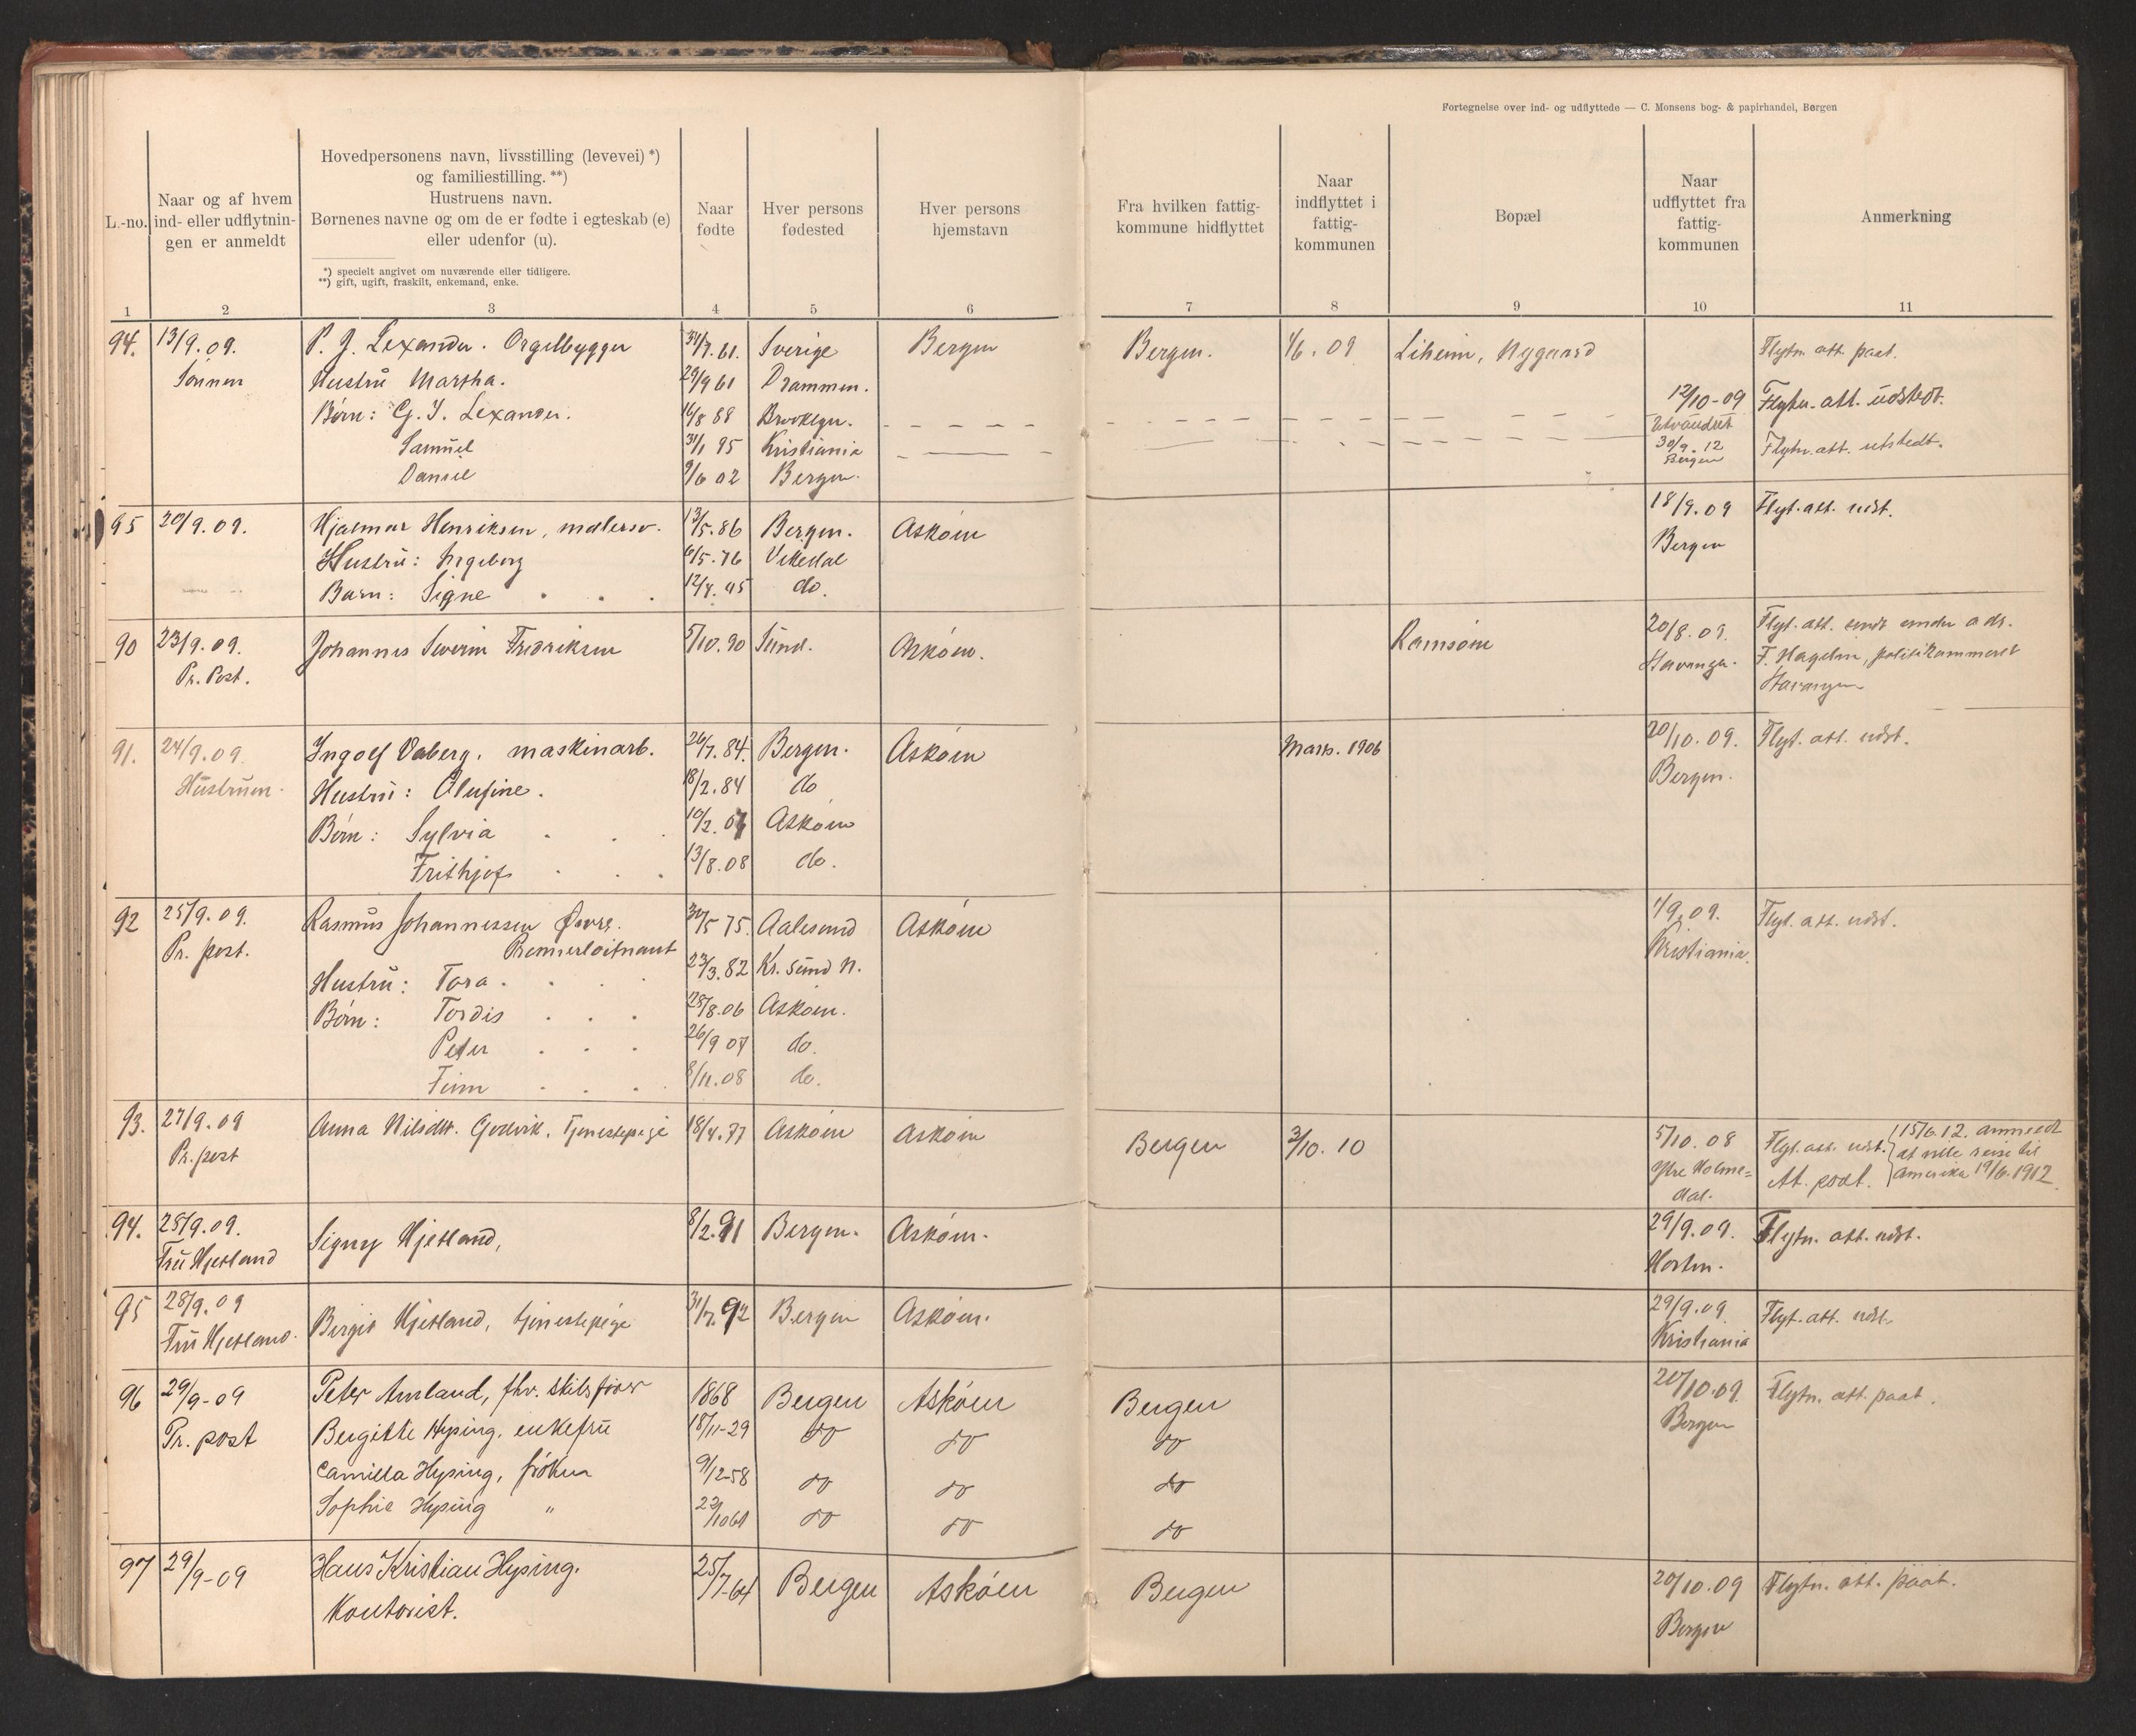 Fortegnelse over ind- og udflyttede — C. Monsens bog- & papirhandel, Bergen
L.-no.
Naar og af hvem
ind- eller udflytnin-
gen er anmeldt
Hovedpersonens navn, livsstilling (levevei) *)
og familiestilling. **)
Hustruens navn.
Børnenes navne og om de er fødte i egteskab (e)
eller udenfor (u).
*) specielt angivet om nuværende eller tidligere.
**) gift, ugift, fraskilt, enkemand, enke.
Naar
fødte
Hver persons
fødested
Hver persons
hjemstavn
Fra hvilken fattig-
kommune hidflyttet
Naar
indflyttet i
fattig-
kommunen
Bopæl
Naar
udflyttet fra
fattig-
kommunen
Anmerkning
1 2 3 4 5 6 7 8 9 10 11
94. 13/9.09. P. J. Lexander. Orgelbygger 7.61. Sverige Bergen Bergen. 1/6.09 Liheim, Nygaard Flytn. att. paat.
Sønnen Hustrü Martha. 29/9 61 Drammen.
12/10-09 Flytn. att. üdstedt.
Børn: G. Y. Lexander. 16/8 88 Brooklyn. Utvandret
Samüel 31/1 95 Kristiania 30/9.12 Flytn. att. utstedt.
Bergen
Daniel 9/6 02 Bergen.
95 20/9.09. Hjalmar Henriksen, malersv. 13/5.86 Bergen. Askøin 18/9.09 Flyt. att. udst.
Hustrü: Ingeborg 6/5.76 Vikedal Bergen
Barn: Signe do.
90 23/9.09. Johannes Severin Fredriksen 5/10.90 Sünd. Askøin. Ramsøin 20/8.09. Flyt. att. sendt under adr.
Pr. Post. Stavanger. F. Hagelin, politikammeret
Stavanger
91. 24/9.09. Ingolf Vaberg, maskinarb. 26/7.84. Bergen. Askøin Mars. 1906 20/10.09. Flyt. att. udst.
Hüstrüen. Hustrü: Olufine. 18/2.84 do Bergen.
Børn: Sylvia 10/2.07 Askøin
Frithjof 13/8.08 do.
92 25/9.09. Rasmus Johannessen Øvre. 30/5 75. Aalesund Askøin 1/9.09. Flyt. att. udst.
Pr. post. Premierløitnant Kristiania.
Hustrü: Tora. 23/3.82 Kr. sünd N.
Børn: Tordis 28/8.06 Askøin.
Peter 26/9 07 do.
Finn 8/11.08 do.
93. 27/9.09 Anna Nilsdtr. Godvik, Tjenestepige 18/4.77 Askøin Askøin Bergen 3/10.10 5/10.08 Flyt. att. udst. 15/6.12. anmeldt
Pr. post Ytre Holme= At. post. at ville reise til
dal. Amerika 19/6.1912.
94. 28/9.09. Signy Hjetland, 8/2.91 Bergen. Askøin. 29/9.09. Flytn. att. udst.
Frü Hjetland Horten.
95 28/9.09 Birgit Hjetland, tjenestepige 31/7.92 Bergen Askøin. 29/9.09. Flyt. att. udst.
Frü Hjetland. Kristiania
96 29/9-09 Peter Amland, fhv. skibsfører 1868 Bergen Askøen Bergen 20/10.09. Flytn. att. paat.
Pr. post Bergitte Hysing, enkefrü 18/11-29 do do do Bergen
Camilla Hysing, frøken 9/12-58 do do do
Sophie Hysing " do do do
97 29/9-09 Hans Kristian Hysing. 25/7-64 Bergen Askøen Bergen 20/10.09 Flytn. att. paat.
Kontorist. Bergen